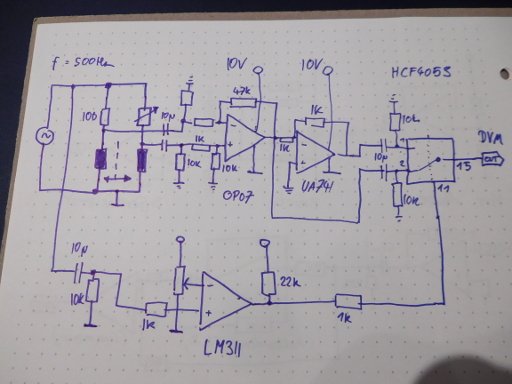 f = 500Hz
10V
10V
HCF4053
100
10µ
47k
1k
1k
1k
10k
10k
10k
OP07
UA741
10µ
1
2
15
11
DVM
OUT
10k
10µ
10k
1k
22k
1k
LM311